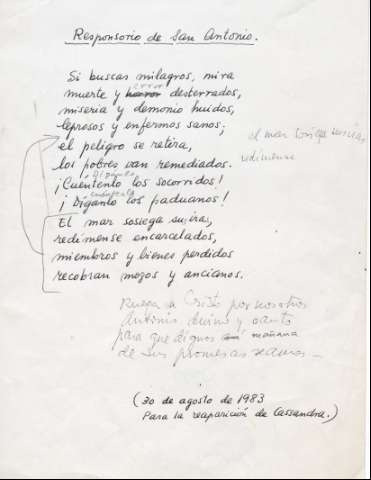 Responsorio de San Antonio.
Si buscas milagros, mira
error
muerte y horror desterrados,
miseria y demonio huidos,
leprosos y enfermos sanos;
el mar sosiega su iras,
redimense
el peligro se retira,
los pobres van remediados.
Díganlo
¡Cuéntenlo los socorridos!
cuéntenlo
¡Díganlo los paduanos!
El mar sosiega su iras,
redímense encarcelados,
miembros y bienes perdidos
recobran mozos y ancianos.
Ruega a Cristo por nosotros
Antonio divino y santo
para que dignos mañana
de sus promesas seamos
(30 de agosto de 1983
Para la reaparición de Cassandra.)